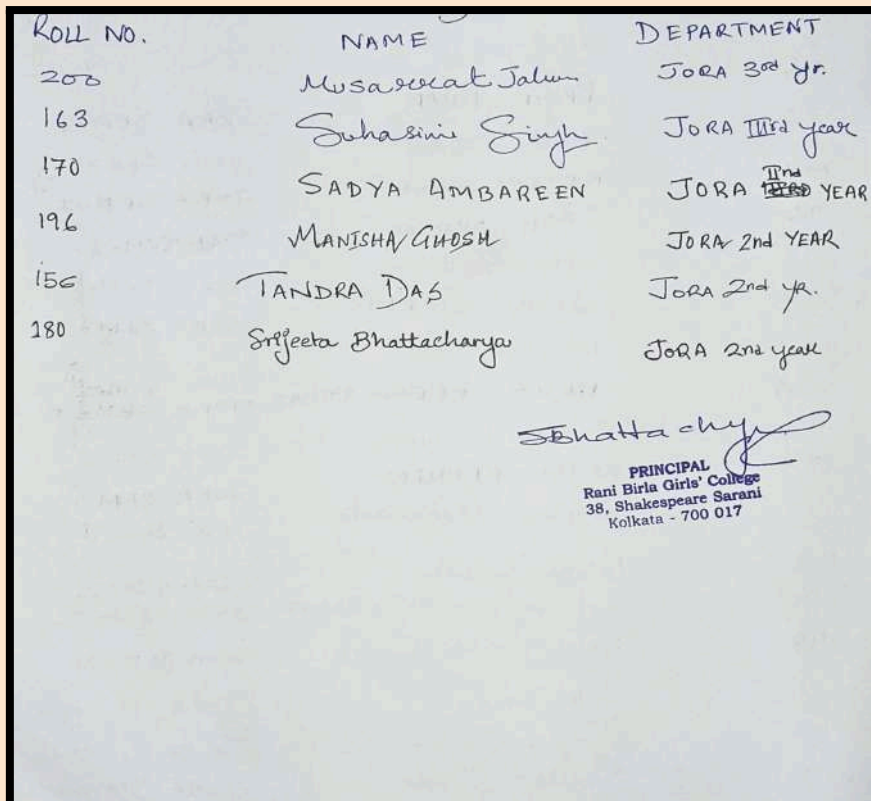 ROLL NO. NAME DEPARTMENT
200 Musarrat Jahan JORA 3rd Yr.
163 Suhasini Singh JORA IIIrd year
170 SADYA AMBAREEN JORA IInd YEAR
196 MANISHA GHOSH JORA 2nd YEAR
156 TANDRA DAS JORA 2nd YR.
180 Srijeeta Bhattacharya JORA 2nd year
SBhattachy
PRINCIPAL
Rani Birla Girls' College
38, Shakespeare Sarani
Kolkata - 700 017